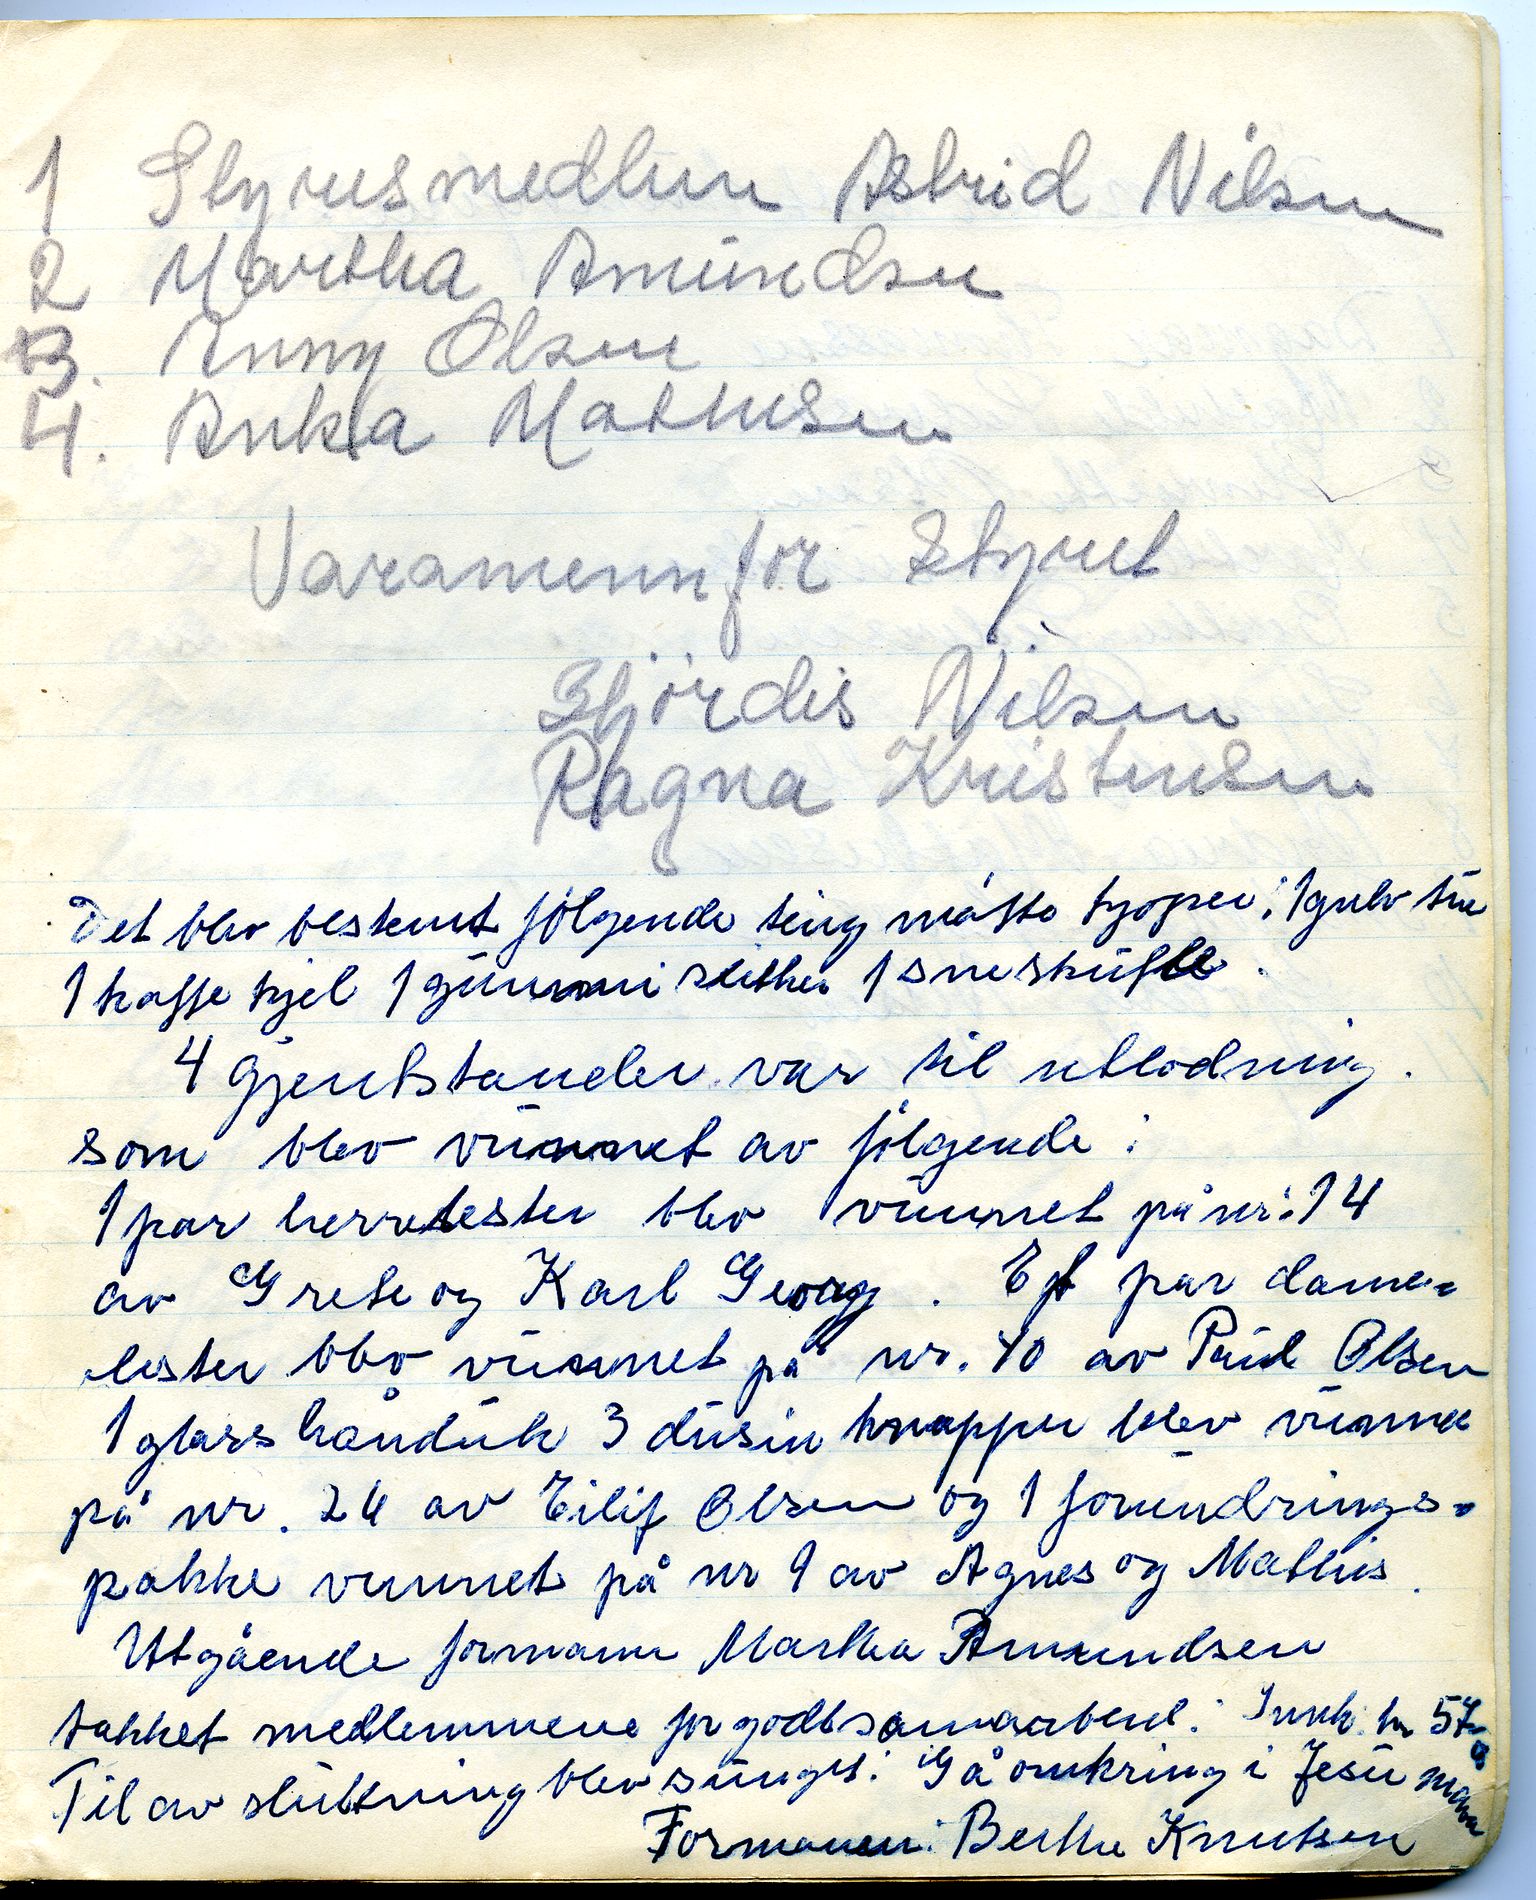 1 Styresmedlem Astrid Nilsen
2 Martha Amundsen
3. Anny Olsen
4. Anka Mathisen
Varamenn for Styret
Hjørdis Nilsen
Ragna Kristensen
Det blev bestemt følgende ting måtte kjøpes: 1 gulv
1 kaffe kjel 1 gummi slikker 1 sneskuffe.
4 gjentstander var til utlodning.
som blev vunnet av følgende:
1 par herrelester blev vunnet på nr: 14
av Grete og Karl Georg. Et par dame-
lester blev vunnet på nr. 40 av Paul Olsen
1 glass håndduk 3 dusin knapper blev vunne
på nr. 24 av Eilif Olsen og 1 forundrings-
pakke vunnet på nr 9 av Agnes og Mathis.
Utgående formann Martha Amundsen
takket medlemmene for godt samarbeid. Innk. kr 57
Til avsluttning blev sunget: Gå omkring i Jesu navn
Formann: Berthe Knutsen